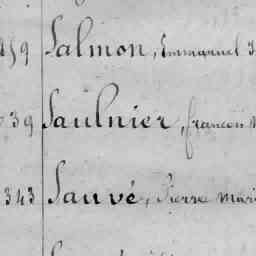 Salmon, Emmanuel
39 Saulnier, françois
343 Sauvé, Pierre Mari